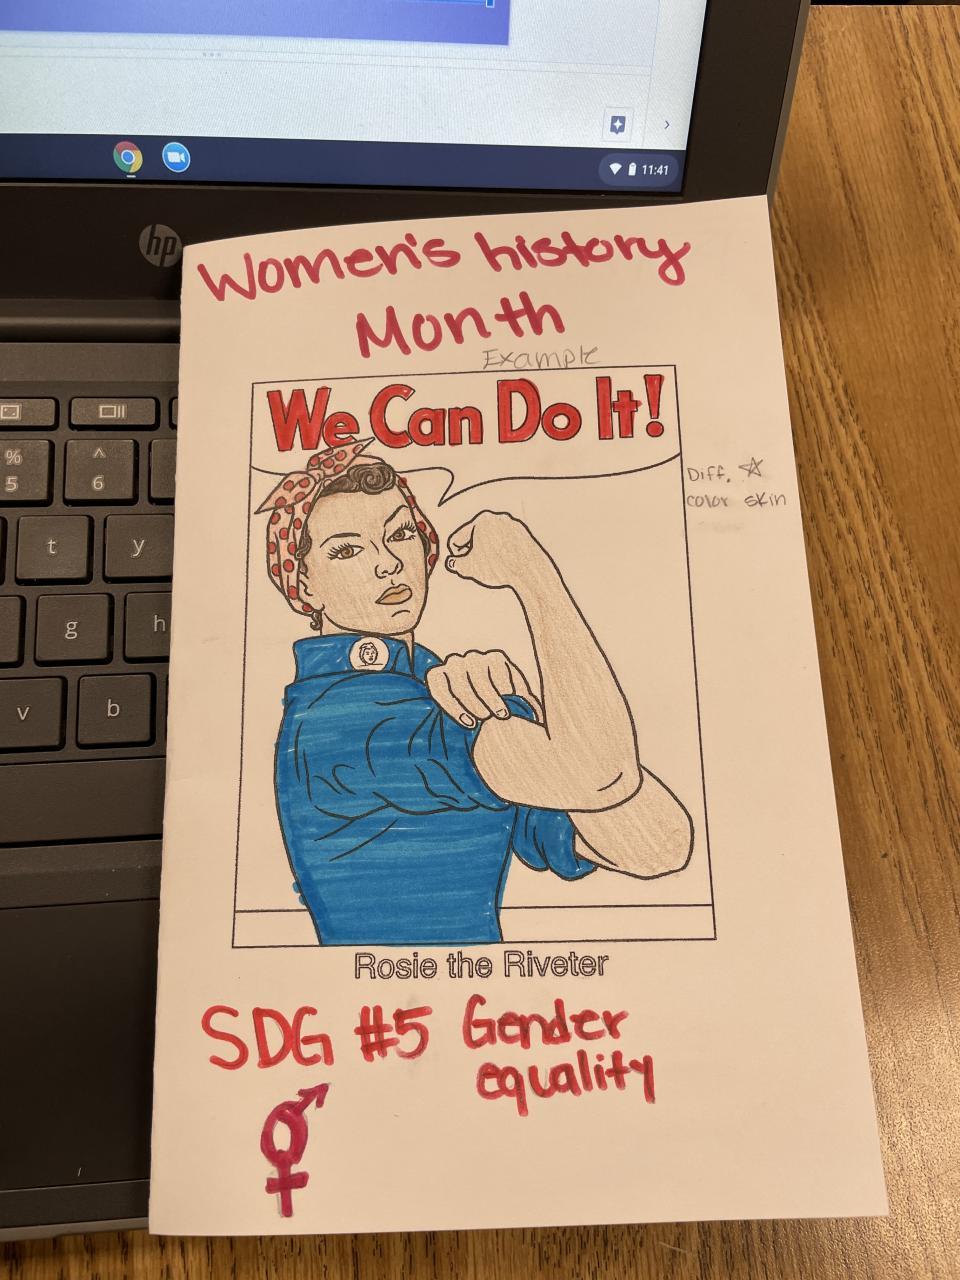 11:41
hp
Women's history
Month
Example
We Can Do It!
Diff. ☆
color skin
%
5
^
6
t
y
g
h
v
b
Rosie the Riveter
SDG #5 Gender
equality